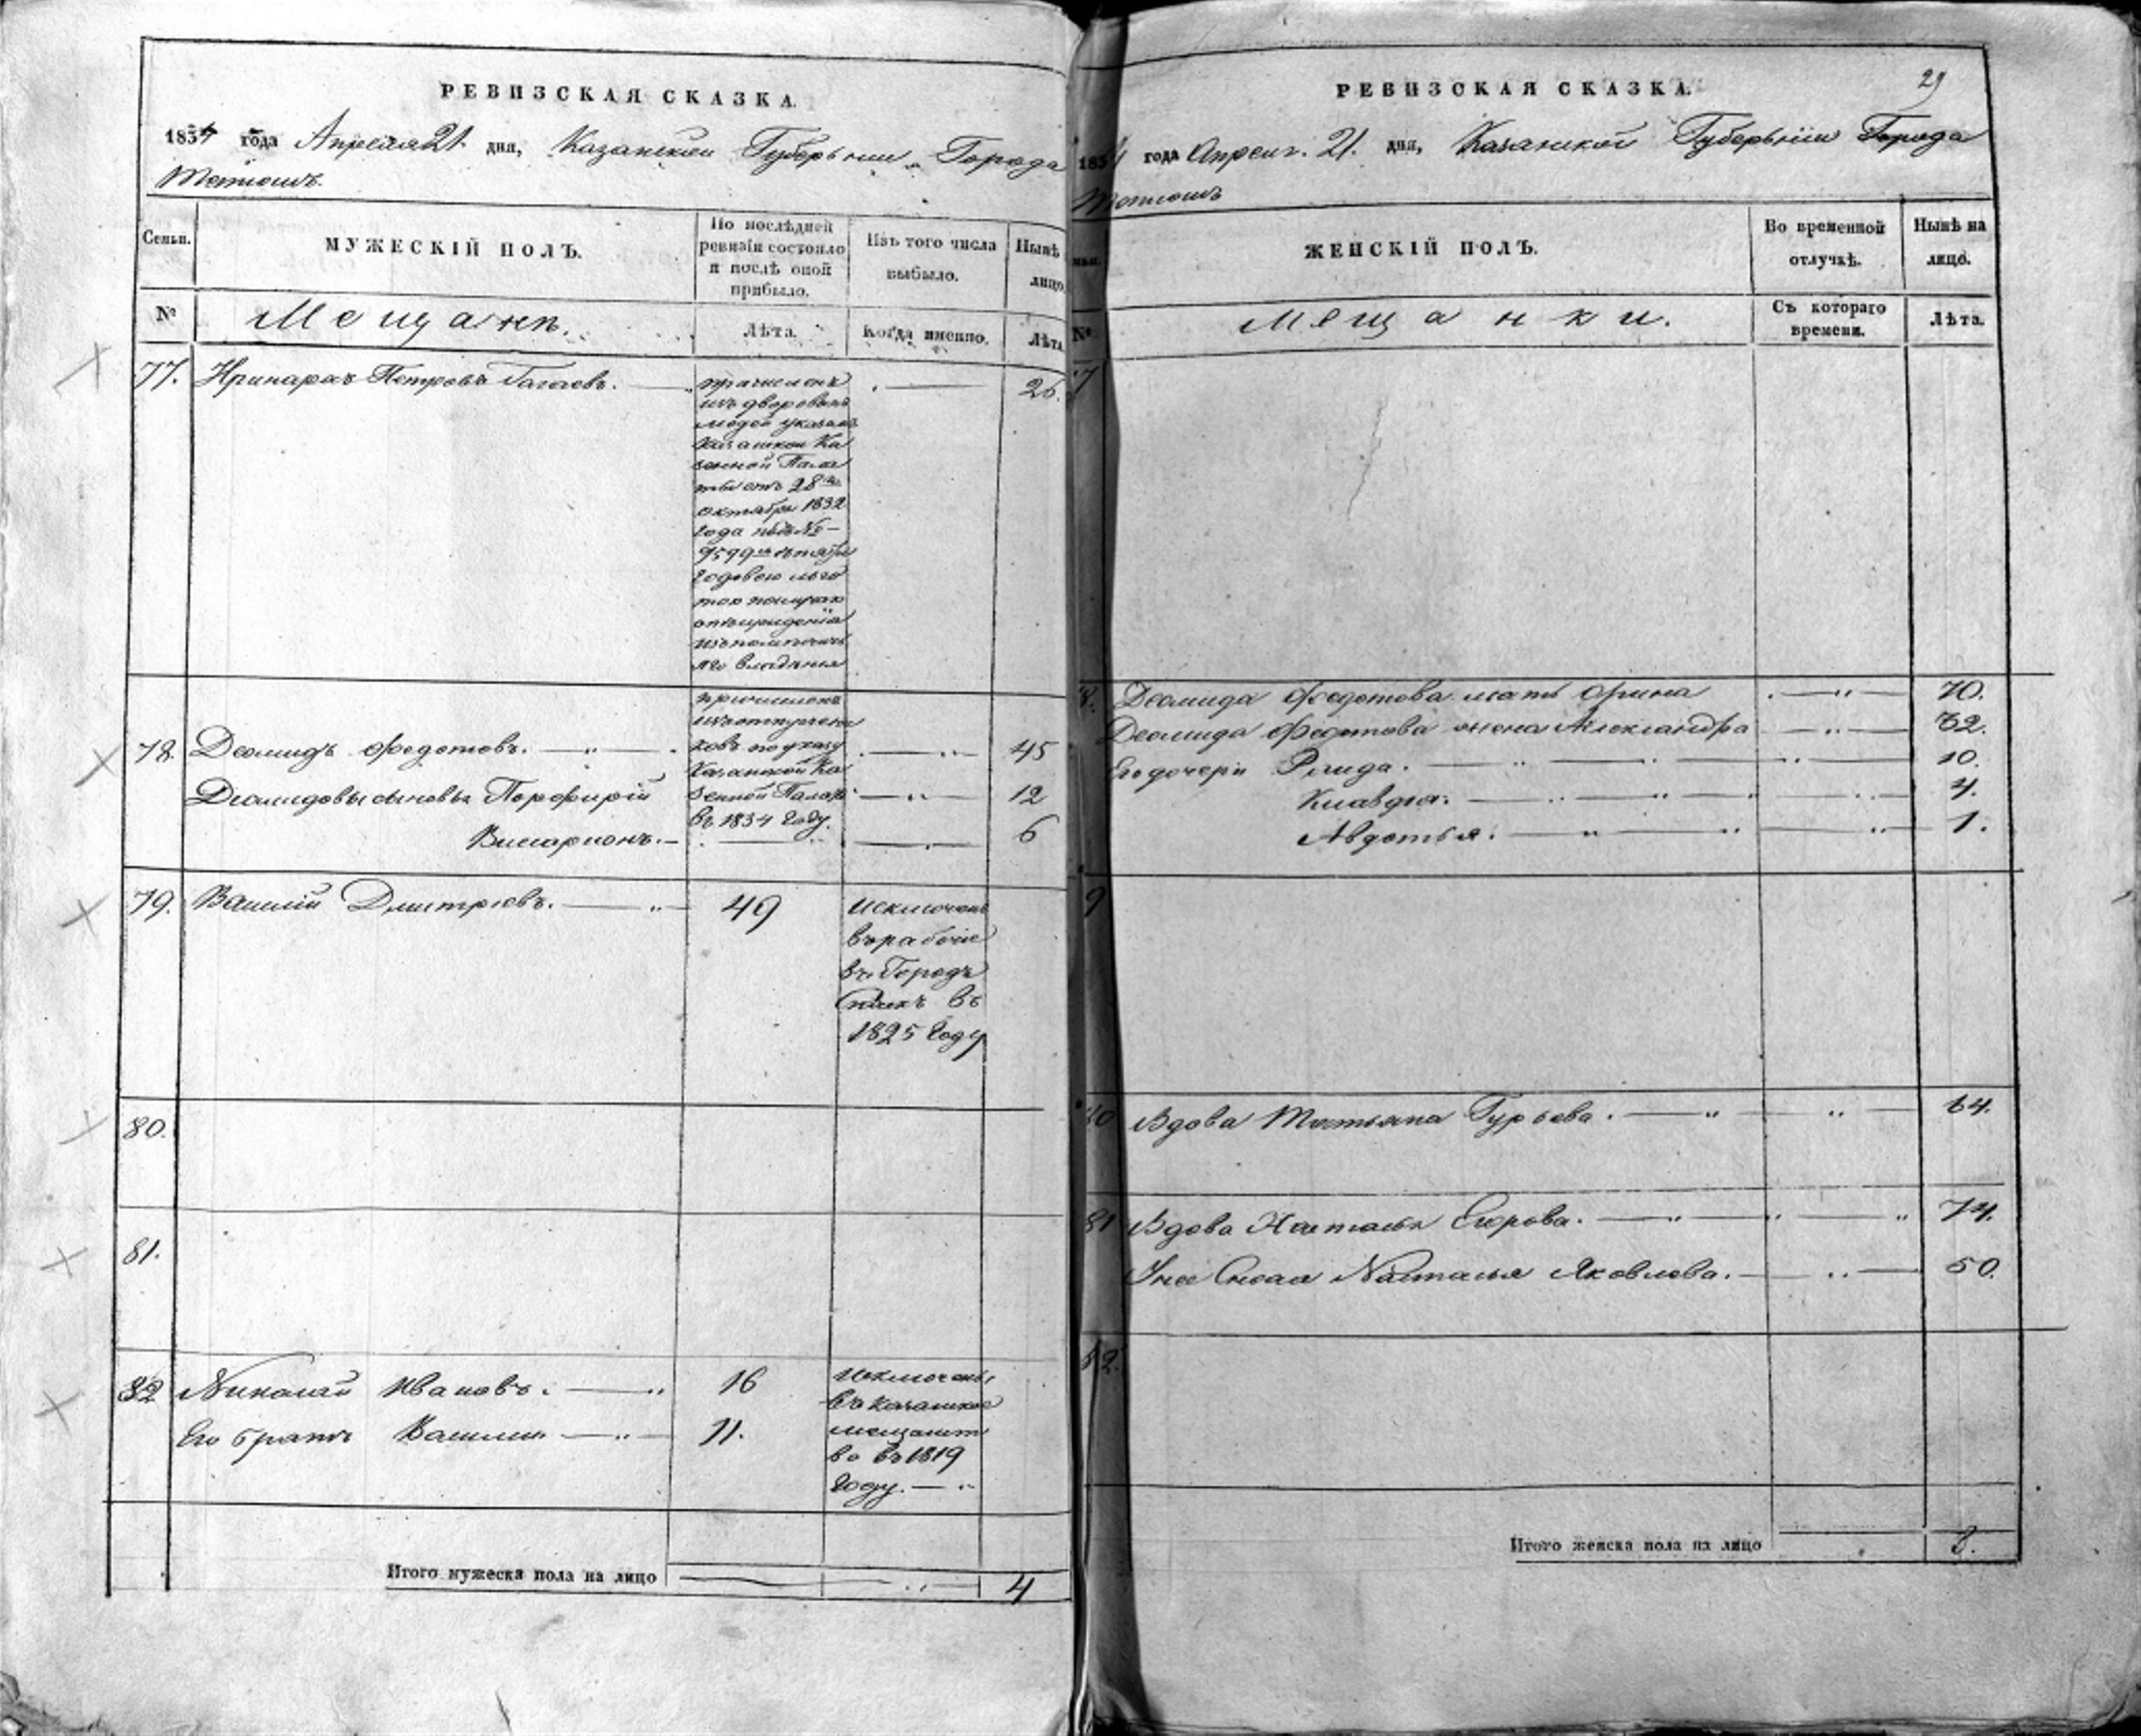 РЕВИЗСКАЯ СКАЗКА.
1834 года Апреля 21. дня, Казанской Губернии Города
Тетюшъ.
Семьи.
МУЖЕСКІЙ ПОЛЪ.
По послѣдней
ревизіи состояло
и послѣ оной
прибыло.
Изъ того числа
выбыло.
Нынѣ
лицо
№
Мещане.
Лѣта.
Когда именно.
Лѣта
77. Петровъ 26.
причисленъ
изъ дворовыхъ
людей указомъ
Казанской Ка
зенной Пала
ты отъ 28го
октября 1832
года подъ №
9599мъ съ пяти
годовою льго
тою
владѣнія
78. Деомидъ Федотовъ. 45
Деомидовы сыновья Порфирій 12
Виссаріонъ. 6
причисленъ
изъ отпущенни
ковъ по указу
Казанской Ка
зенной Палаты
въ 1834 году.
79. Василій Дмитріевъ. 49
Исключенъ
въ рабочіе
въ Городъ
въ
1825 году
80.
81.
82 Николай Ивановъ. 16
Его братъ Василии 11.
Исключены
въ казанское
мещанст
во въ 1819
году.
Итого мужеска пола на лицо 4
29
РЕВИЗСКАЯ СКАЗКА.
года Апреля. 21. дня, Казанской Губерніи Города
Тетюшъ
ЖЕНСКІЙ ПОЛЪ.
Во временной
отлучкѣ.
Нынѣ на
лицо.
№
Мещанки.
Съ котораго
времени.
Лѣта.
7
8. Деомида Федотова мать Орина 70.
Деомида Федотова жена Александра 32.
Его дочери 10.
Клавдія. 4.
Авдотья. 1.
9
80 Вдова Татьяна Гурьева. 64.
81 Вдова Наталья Егорова. 74.
Наталья Яковлева. 50.
82.
Итого женска пола на лицо 8.